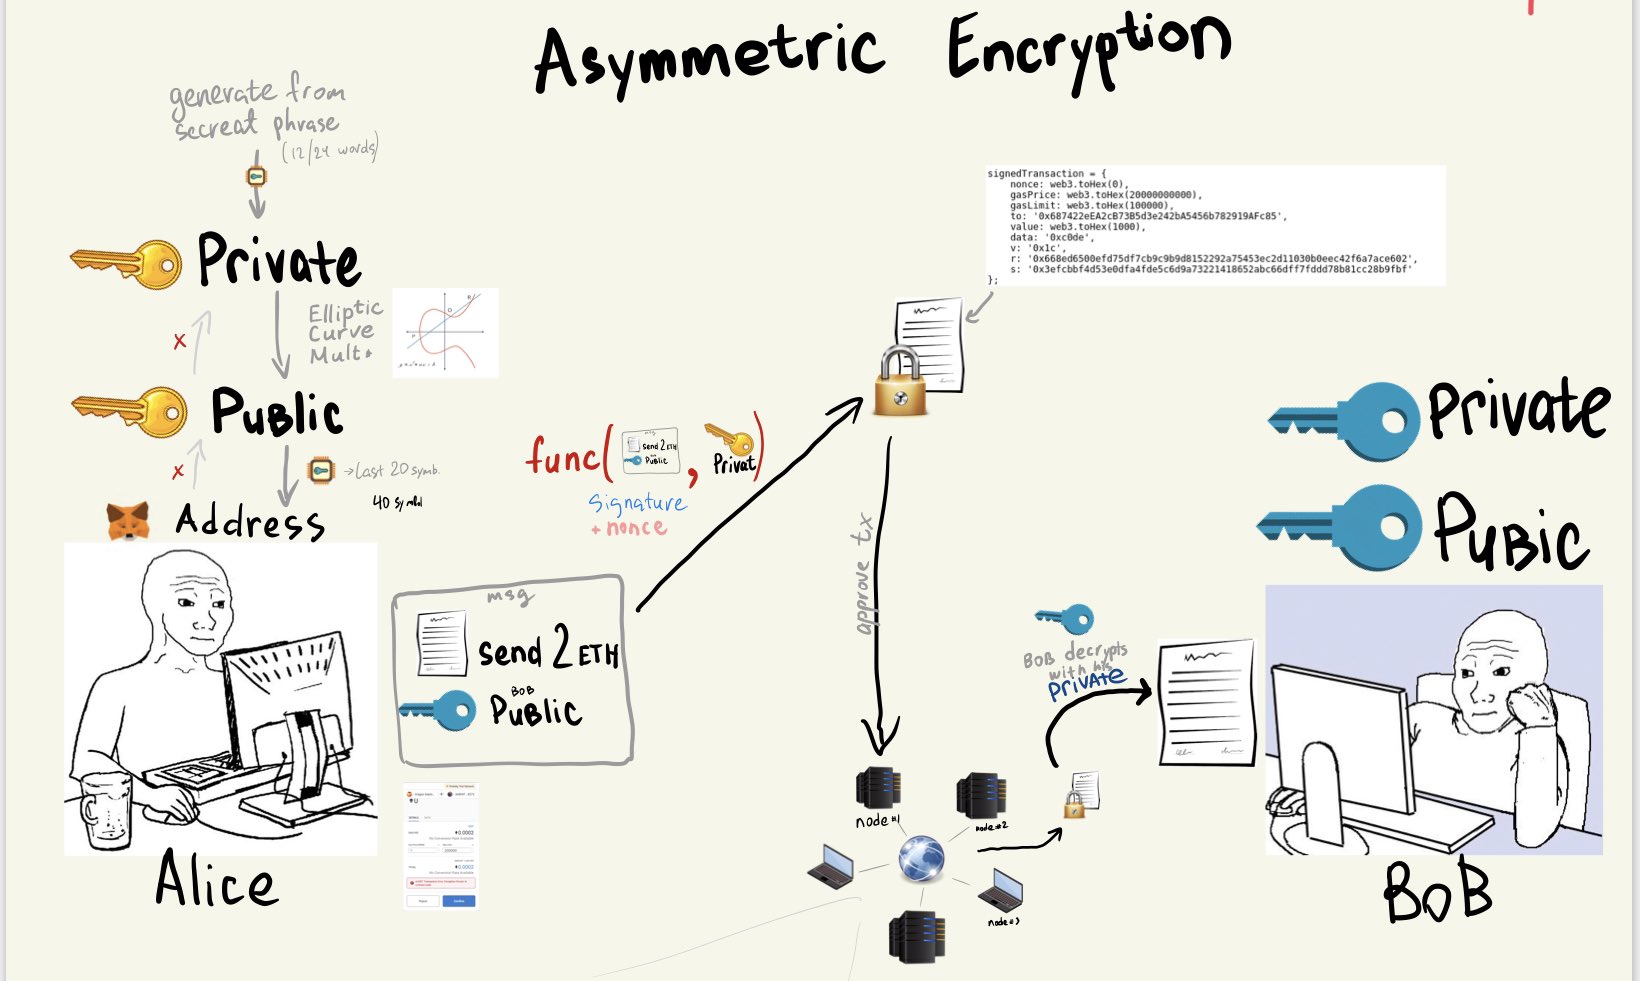 Asymmetric Encryption
generate from
secreat phrase
(12/24 words)
Private
Elliptic
Curve
Mult
x
Public
x
→Last 20 symb.
40 symbl
Address
Alice
msg
send 2 ETH
BOB
Public
func(
msg
send 2 ETH
BOB
Public
,
Privat
)
Signature
+ nonce
signedTransaction = {
nonce: web3.toHex(0),
gasPrice: web3.toHex(20000000000),
gasLimit: web3.toHex(100000),
to: '0x687422eEA2cB73B5d3e242bA5456b782919AFc85',
value: web3.toHex(1000),
data: '0xc0de',
v: '0x1c',
r: '0x668ed6500efd75df7cb9c9b9d8152292a75453ec2d11030b0eec42f6a7ace602',
s: '0x3efcbbf4d53e0dfa4fde5c6d9a73221418652abc66dff7fddd78b81cc28b9fbf'
};
approve tx
node #1
node #2
node #3
BOB decrypts
with his
private
Private
Pubic
BOB